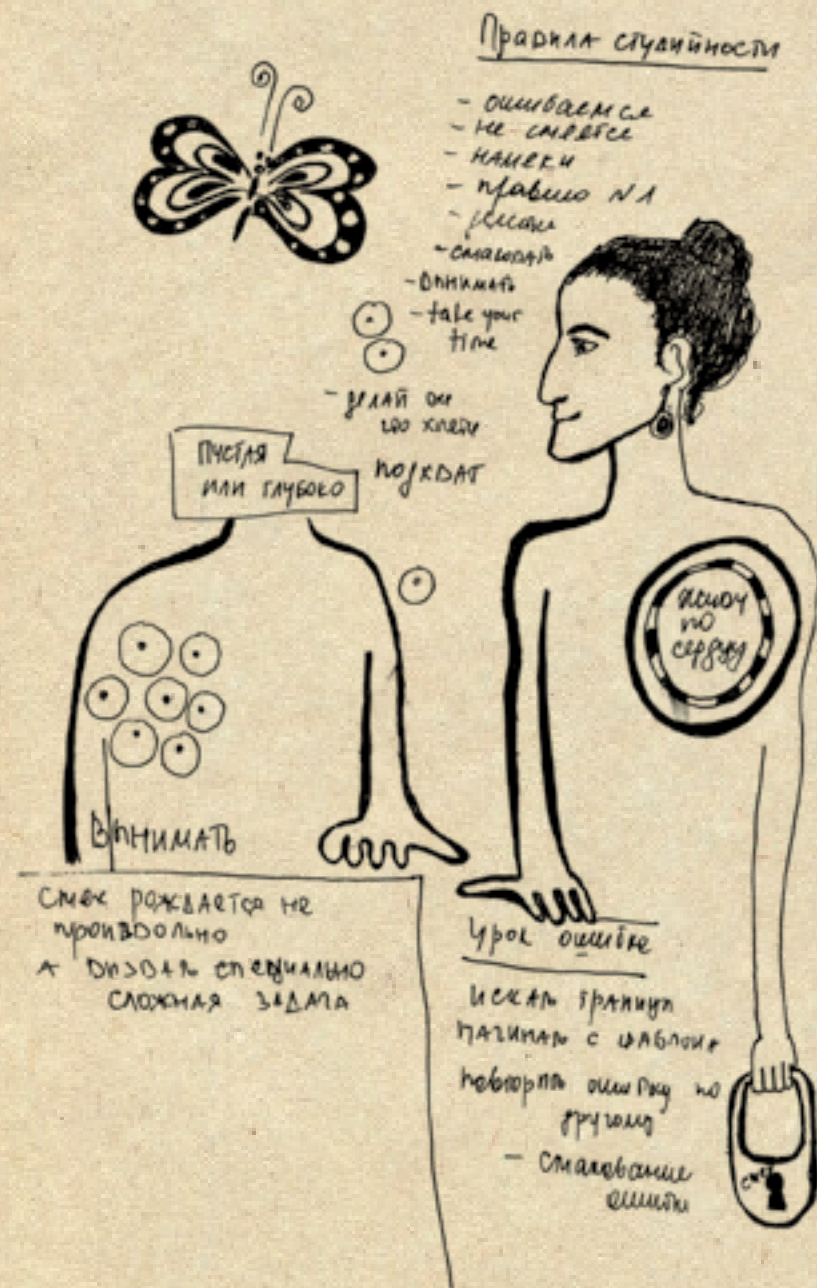 Правила студийности
- ошибаемся
- не смеятся
- намеки
- правило №1
- смаковать
- внимать
- take your
time
- делай он
что хочет
ПОДХВАТ
ПУСТАЯ
ИЛИ ГЛУБОКО
ключ
по
сердцу
ВНИМАТЬ
Смех рождается не
произвольно
а визвать специально
сложная задача
Урок ошибке
искать границу
начинать с шаблона
повторять ошибку по
другому
- смакование
ошибки
смех